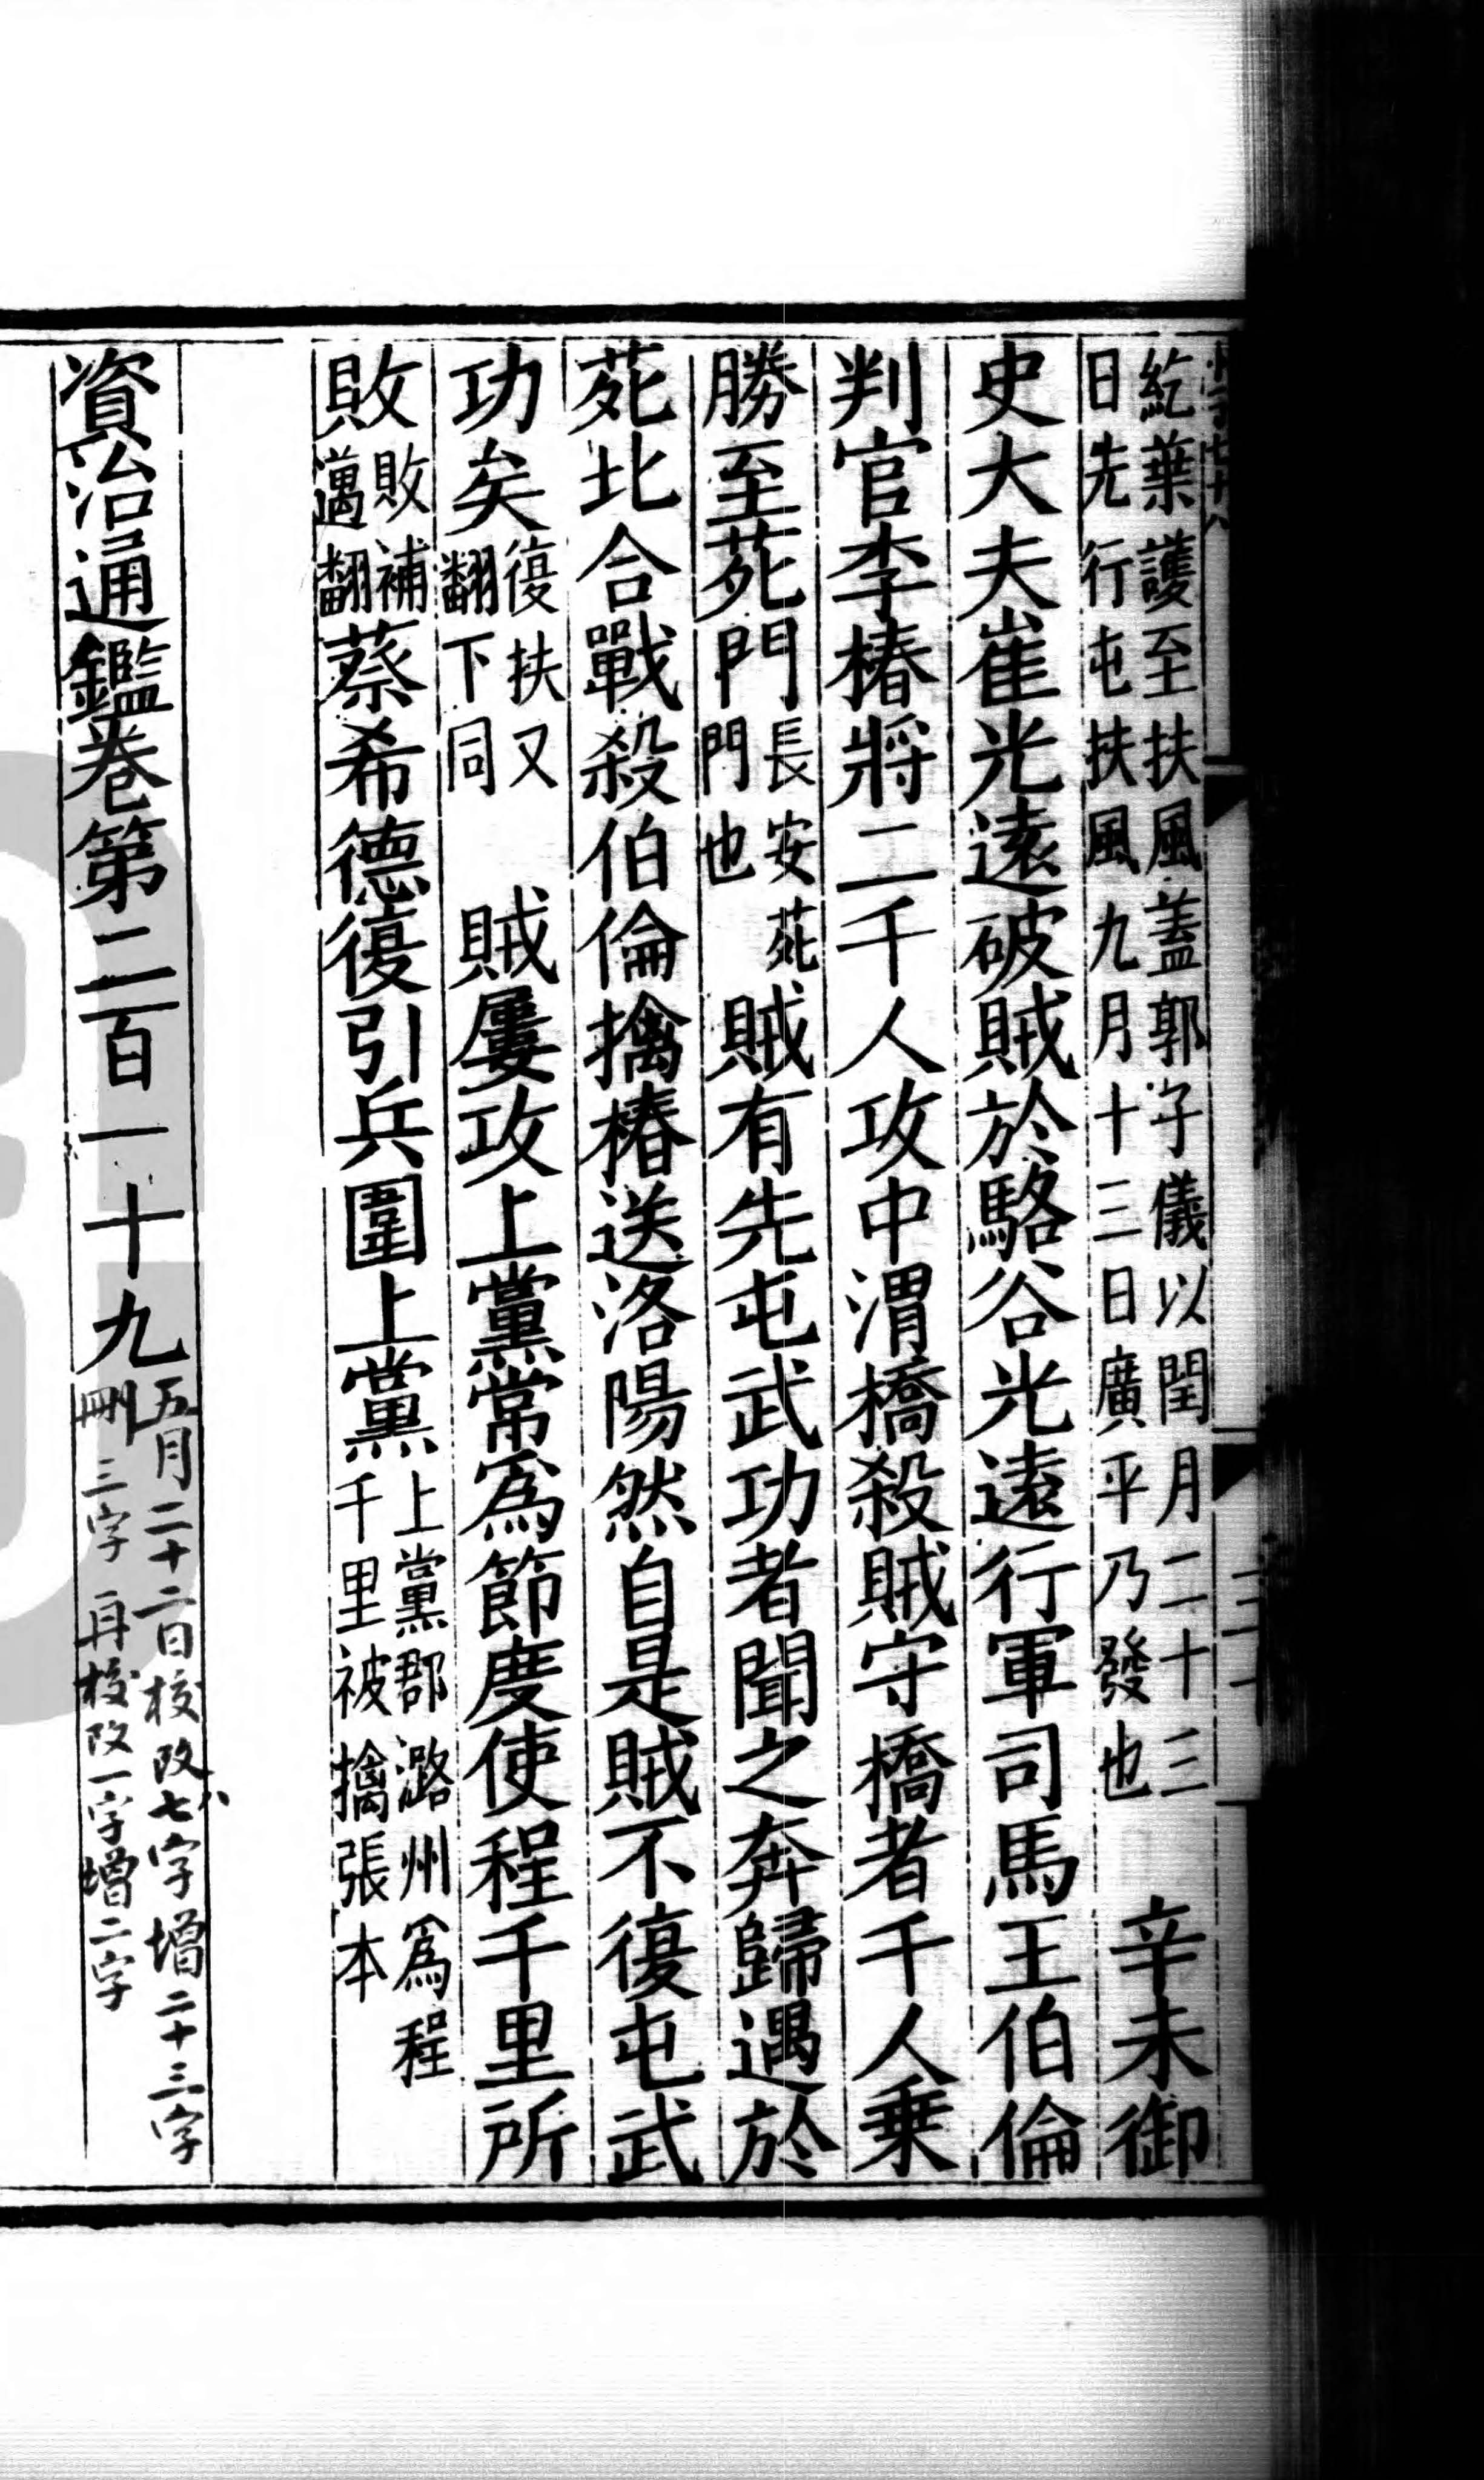 紇葉護至扶風蓋郭子儀以閏月二十三
日先行屯扶風九月十三日廣平乃發也
辛未御
史大夫崔光遠破賊於駱谷光遠行軍司馬王伯倫
判官李椿將二千人攻中渭橋殺賊守橋者千人乗
勝至苑門長安苑門也賊有先屯武功者聞之奔歸遇於
苑北合戰殺伯倫擒椿送洛陽然自是賊不復屯武
功矣復扶又翻下同賊屢攻上黨常為節度使程千里所
敗敗補邁翻蔡希德復引兵圍上黨上黨郡潞州為程千里被擒張本
資治通鑑卷第二百一十九
五月二十二日校改七八字增二十三字
刪三字再校改一字增二字